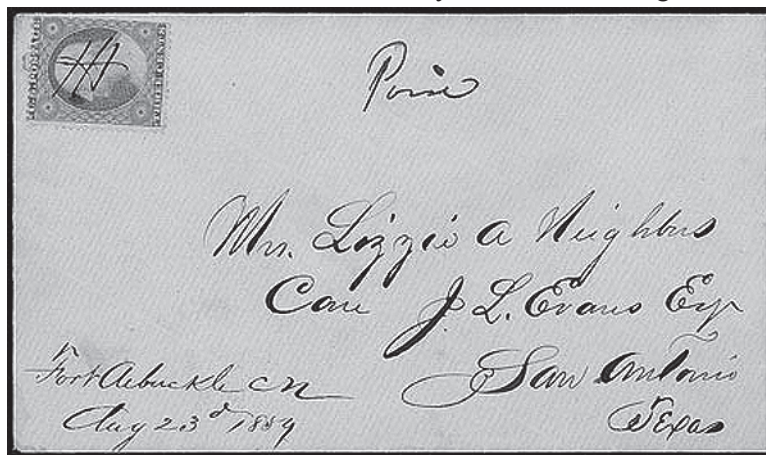 Paid
Mrs. Lizzie A Neighbors
Care J. L. Evans Esqr
San Antonio
Texas
Fort Arbuckle C N
Aug 23d 1859